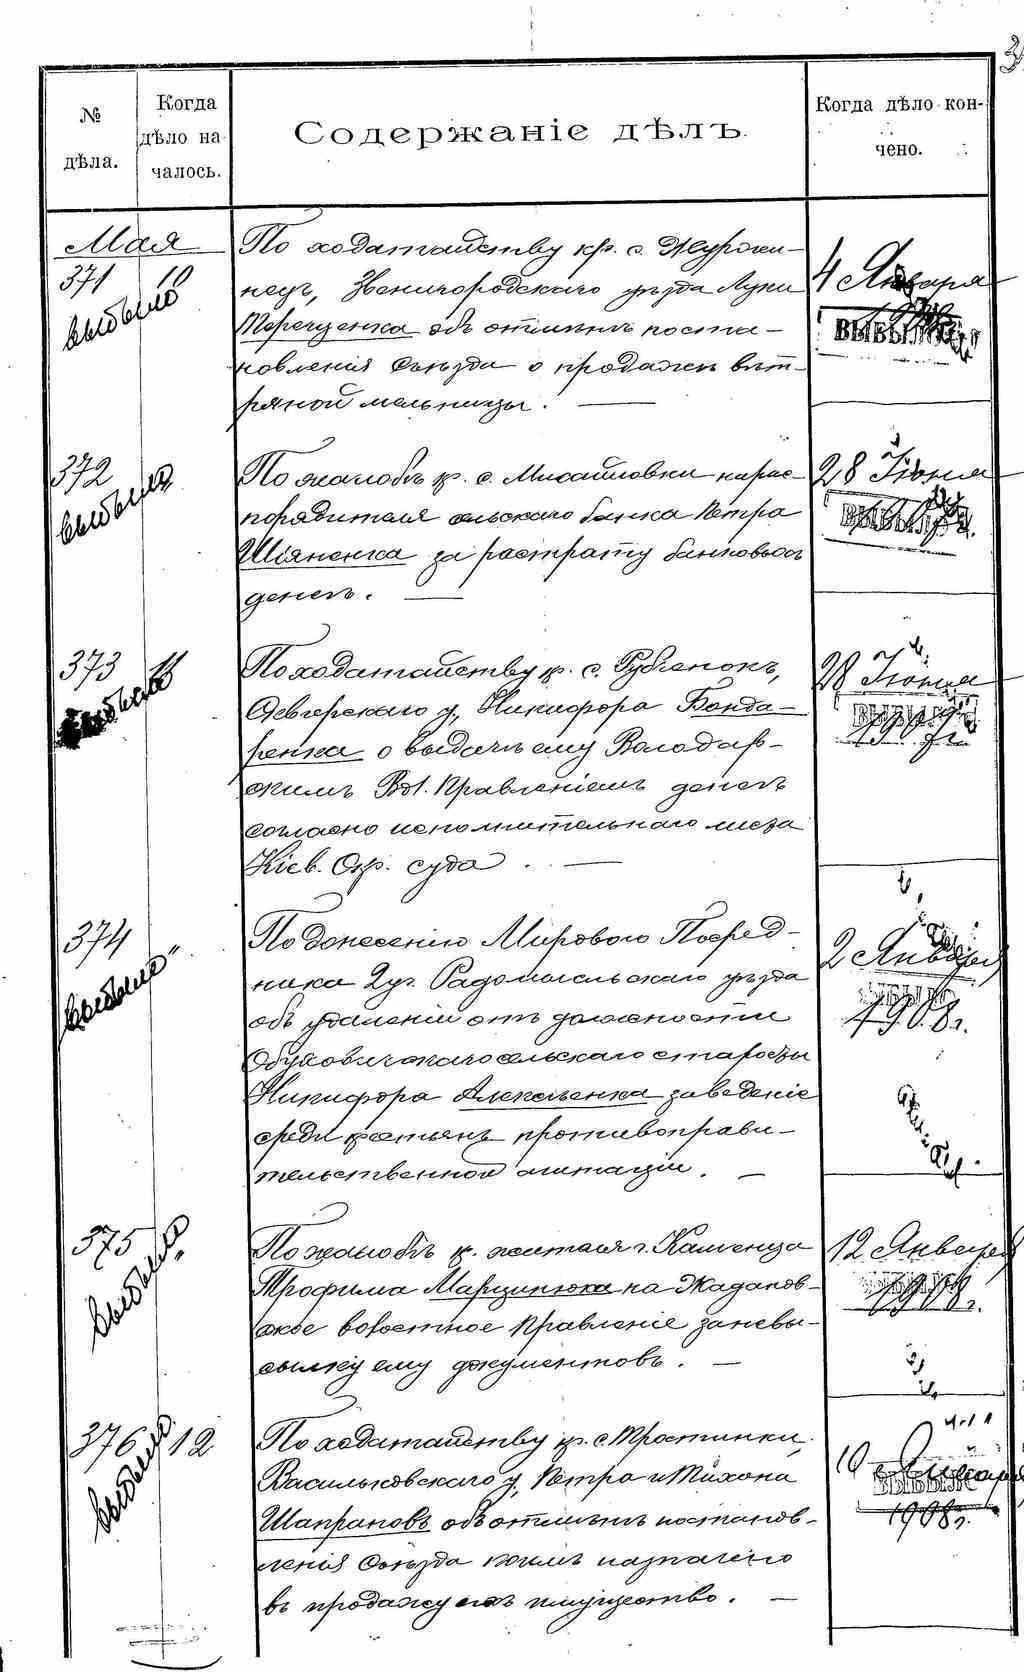 № дѣла.
Когда дѣло началось.
Содержаніе дѣлъ.
Когда дѣло кончено.
Мая
371 10
выбыло
По ходатайству кр. с. Журжи-
нецъ, Звенигородскаго уѣзда Луки
Терещенка объ отмѣнѣ поста-
новленія Съѣзда о продажѣ вѣт-
ряной мельницы. —
4 Января
ВЫБЫЛО
372
выбыло
По жалобѣ кр. с. Михайловки на рас-
порядителя сельскаго банка Петра
Шіяненка за растрату банковыхъ
денегъ. —
28 Іюня
ВЫБЫЛО
373 11
выбыло
По ходатайству кр. с. Рубченокъ,
Сквирскаго у, Никифора Бонда-
ренка о выдачѣ ему Володар-
скимъ Вол. Правленіемъ денегъ
согласно исполнительнаго листа
Кіев. Окр. суда. —
28 Іюня
ВЫБЫЛО
1907 г.
374 "
выбыло
По донесенію Мирового Посред-
ника 2 уч. Радомысльскаго уѣзда
объ удаленіи отъ должности
Обуховичскаго сельскаго старосты
Никифора Алексѣенка за веденіе
среди крестьянъ противоправи-
тельственной агитаціи. —
2 Января
1908 г.
375 "
выбыло
По жалобѣ кр. жителя г. Каменца
Трофима Марцинюка на Жаданов-
ское волостное Правленіе за невы-
сылку ему документовъ. —
12 Января
1908 г.
376 12
выбыло
По ходатайству кр. с. Тростинки,
Васильковскаго у, Петра и Тихона
Шапрановъ объ отмѣнѣ постанов-
ленія Съѣзда коимъ назначено
въ продажу ихъ имущество. —
10 Января
ВЫБЫЛО
1908 г.